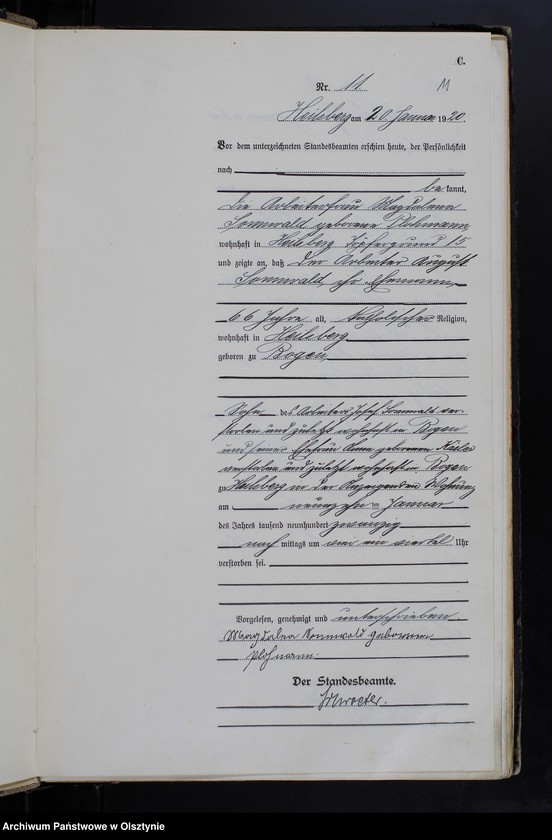 C.
Nr. 11
11
Heilsberg am 20 Januar 1920.
Vor dem unterzeichneten Standesbeamten erschien heute, der Persönlichkeit
nach
be kannt,
die Arbeiterfrau Magdalena
Sonnwald geborene Plohmann
wohnhaft in Heilsberg Töpfergrund 15
und zeigte an, daß der Arbeiter August
Sonnwald ihr Ehemann,
66 Jahre alt, katholischer Religion,
wohnhaft in Heilsberg
geboren zu Rogen,
Sohn des Arbeiters Josef Sonnwald ver-
storben und zuletzt wohnhaft in Rogen
und seiner Ehefrau Anna geborenen
verstorben und zuletzt wohnhaft in Rogen
zu Heilsberg in der Anzeigenden Wohnung
am neunzehn ten Januar
des Jahres tausend neunhundert zwanzig
nach mittags um ein viertel Uhr
verstorben sei.
Vorgelesen, genehmigt und unterschrieben
Magdalena Sonnwald geborene
Plohmann.
Der Standesbeamte.
Schroeter.
Archiwum Państwowe w Olsztynie